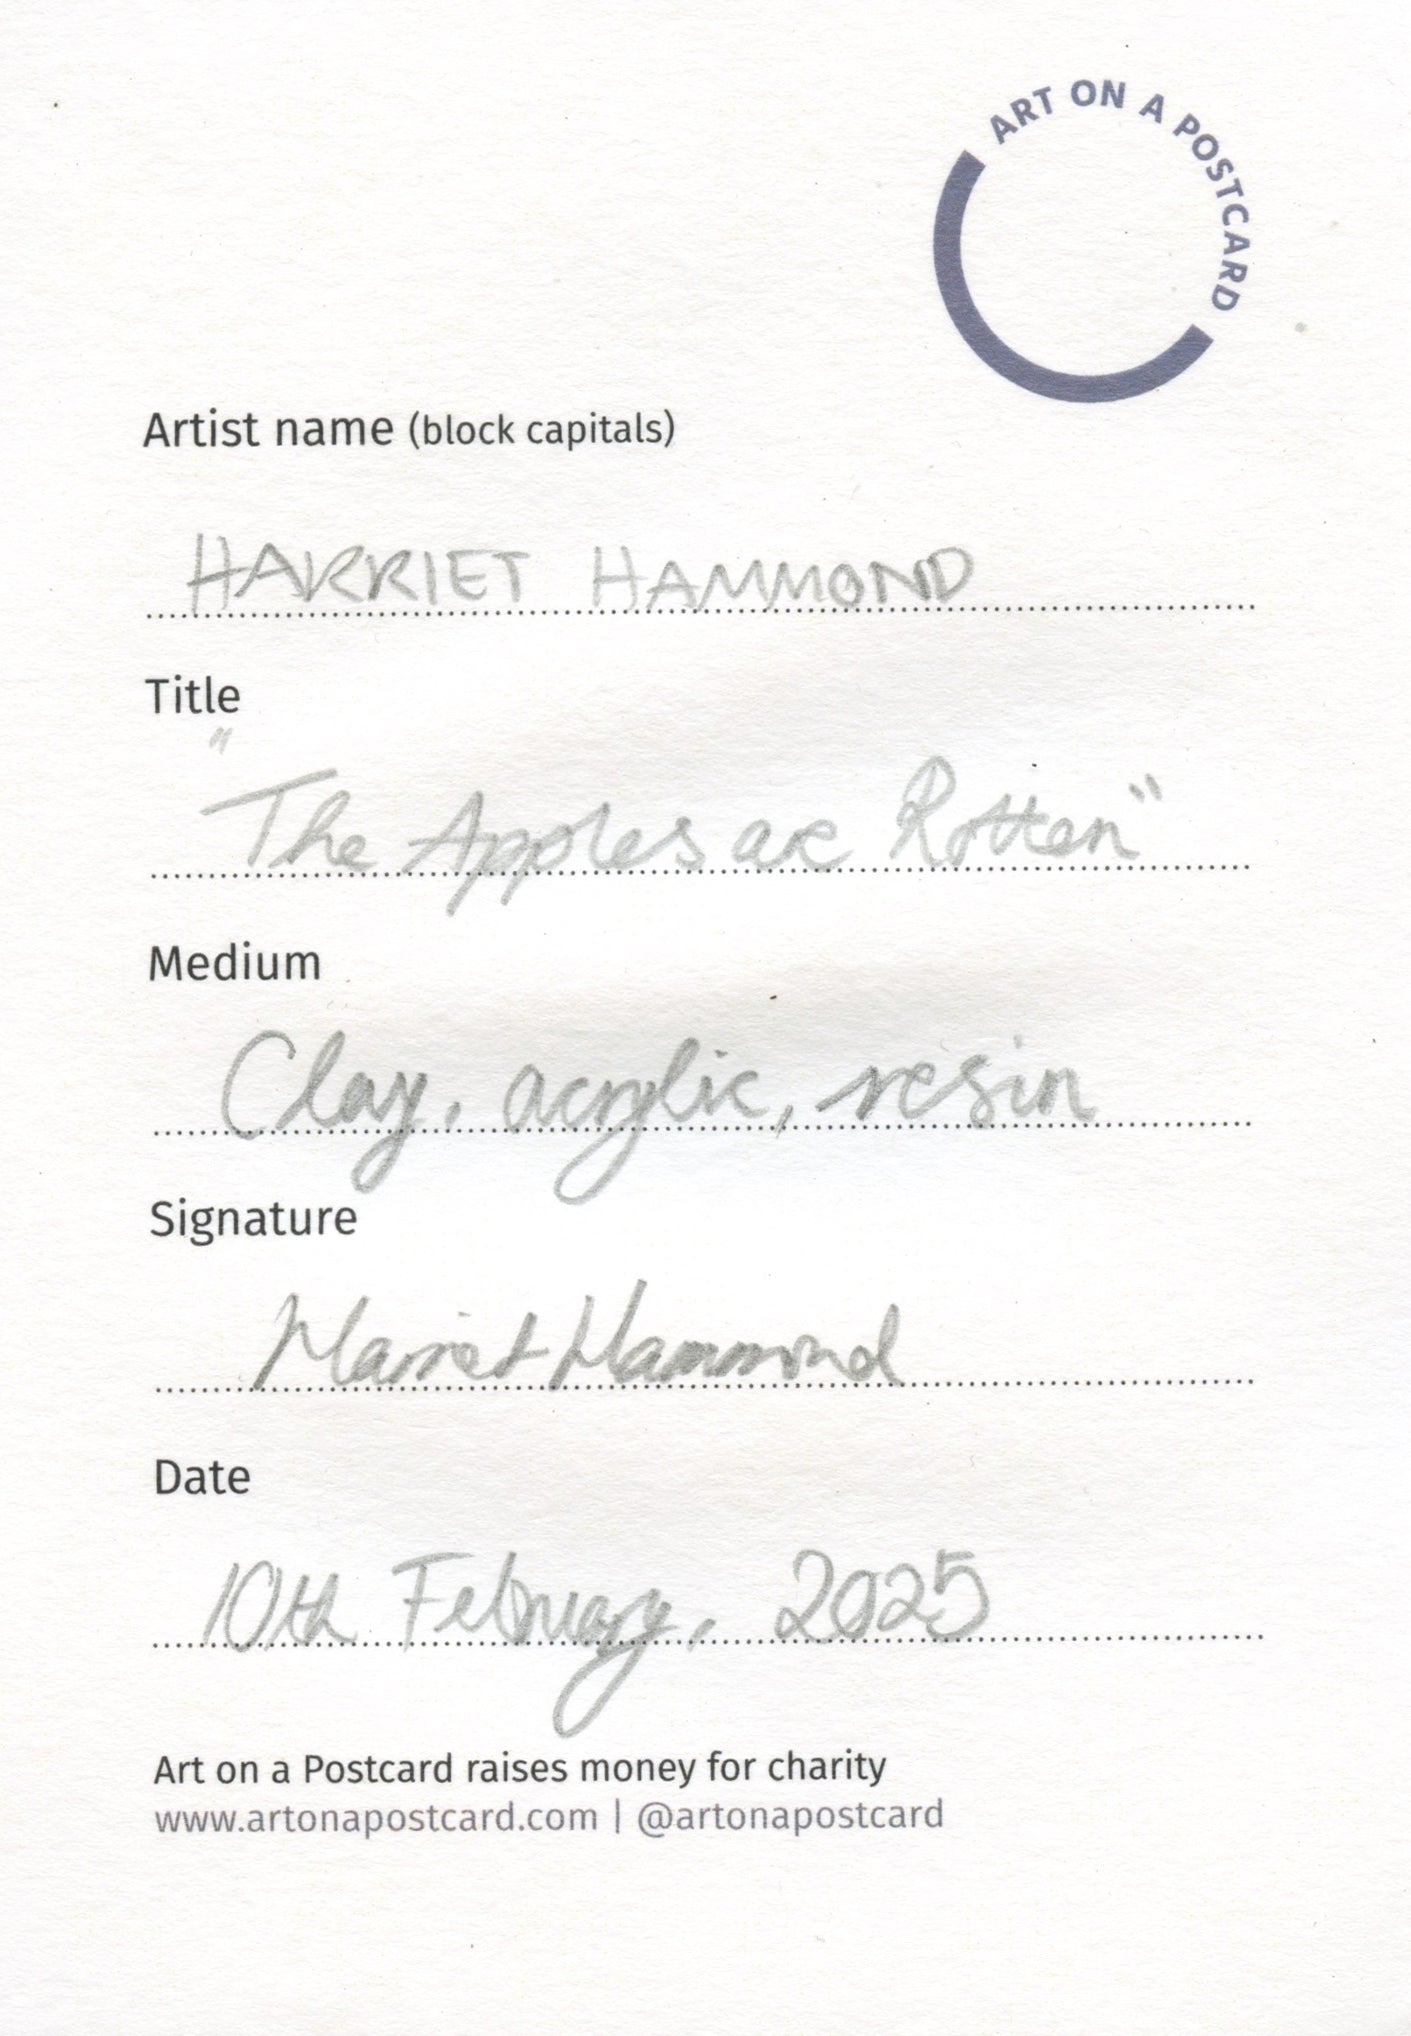 ART ON A POSTCARD
Artist name (block capitals)
HARRIET HAMMOND
Title
"The Apples are Rotten"
Medium
Clay, acrylic, resin
Signature
Harriet Hammond
Date
10th February, 2025
Art on a Postcard raises money for charity
www.artonapostcard.com | @artonapostcard